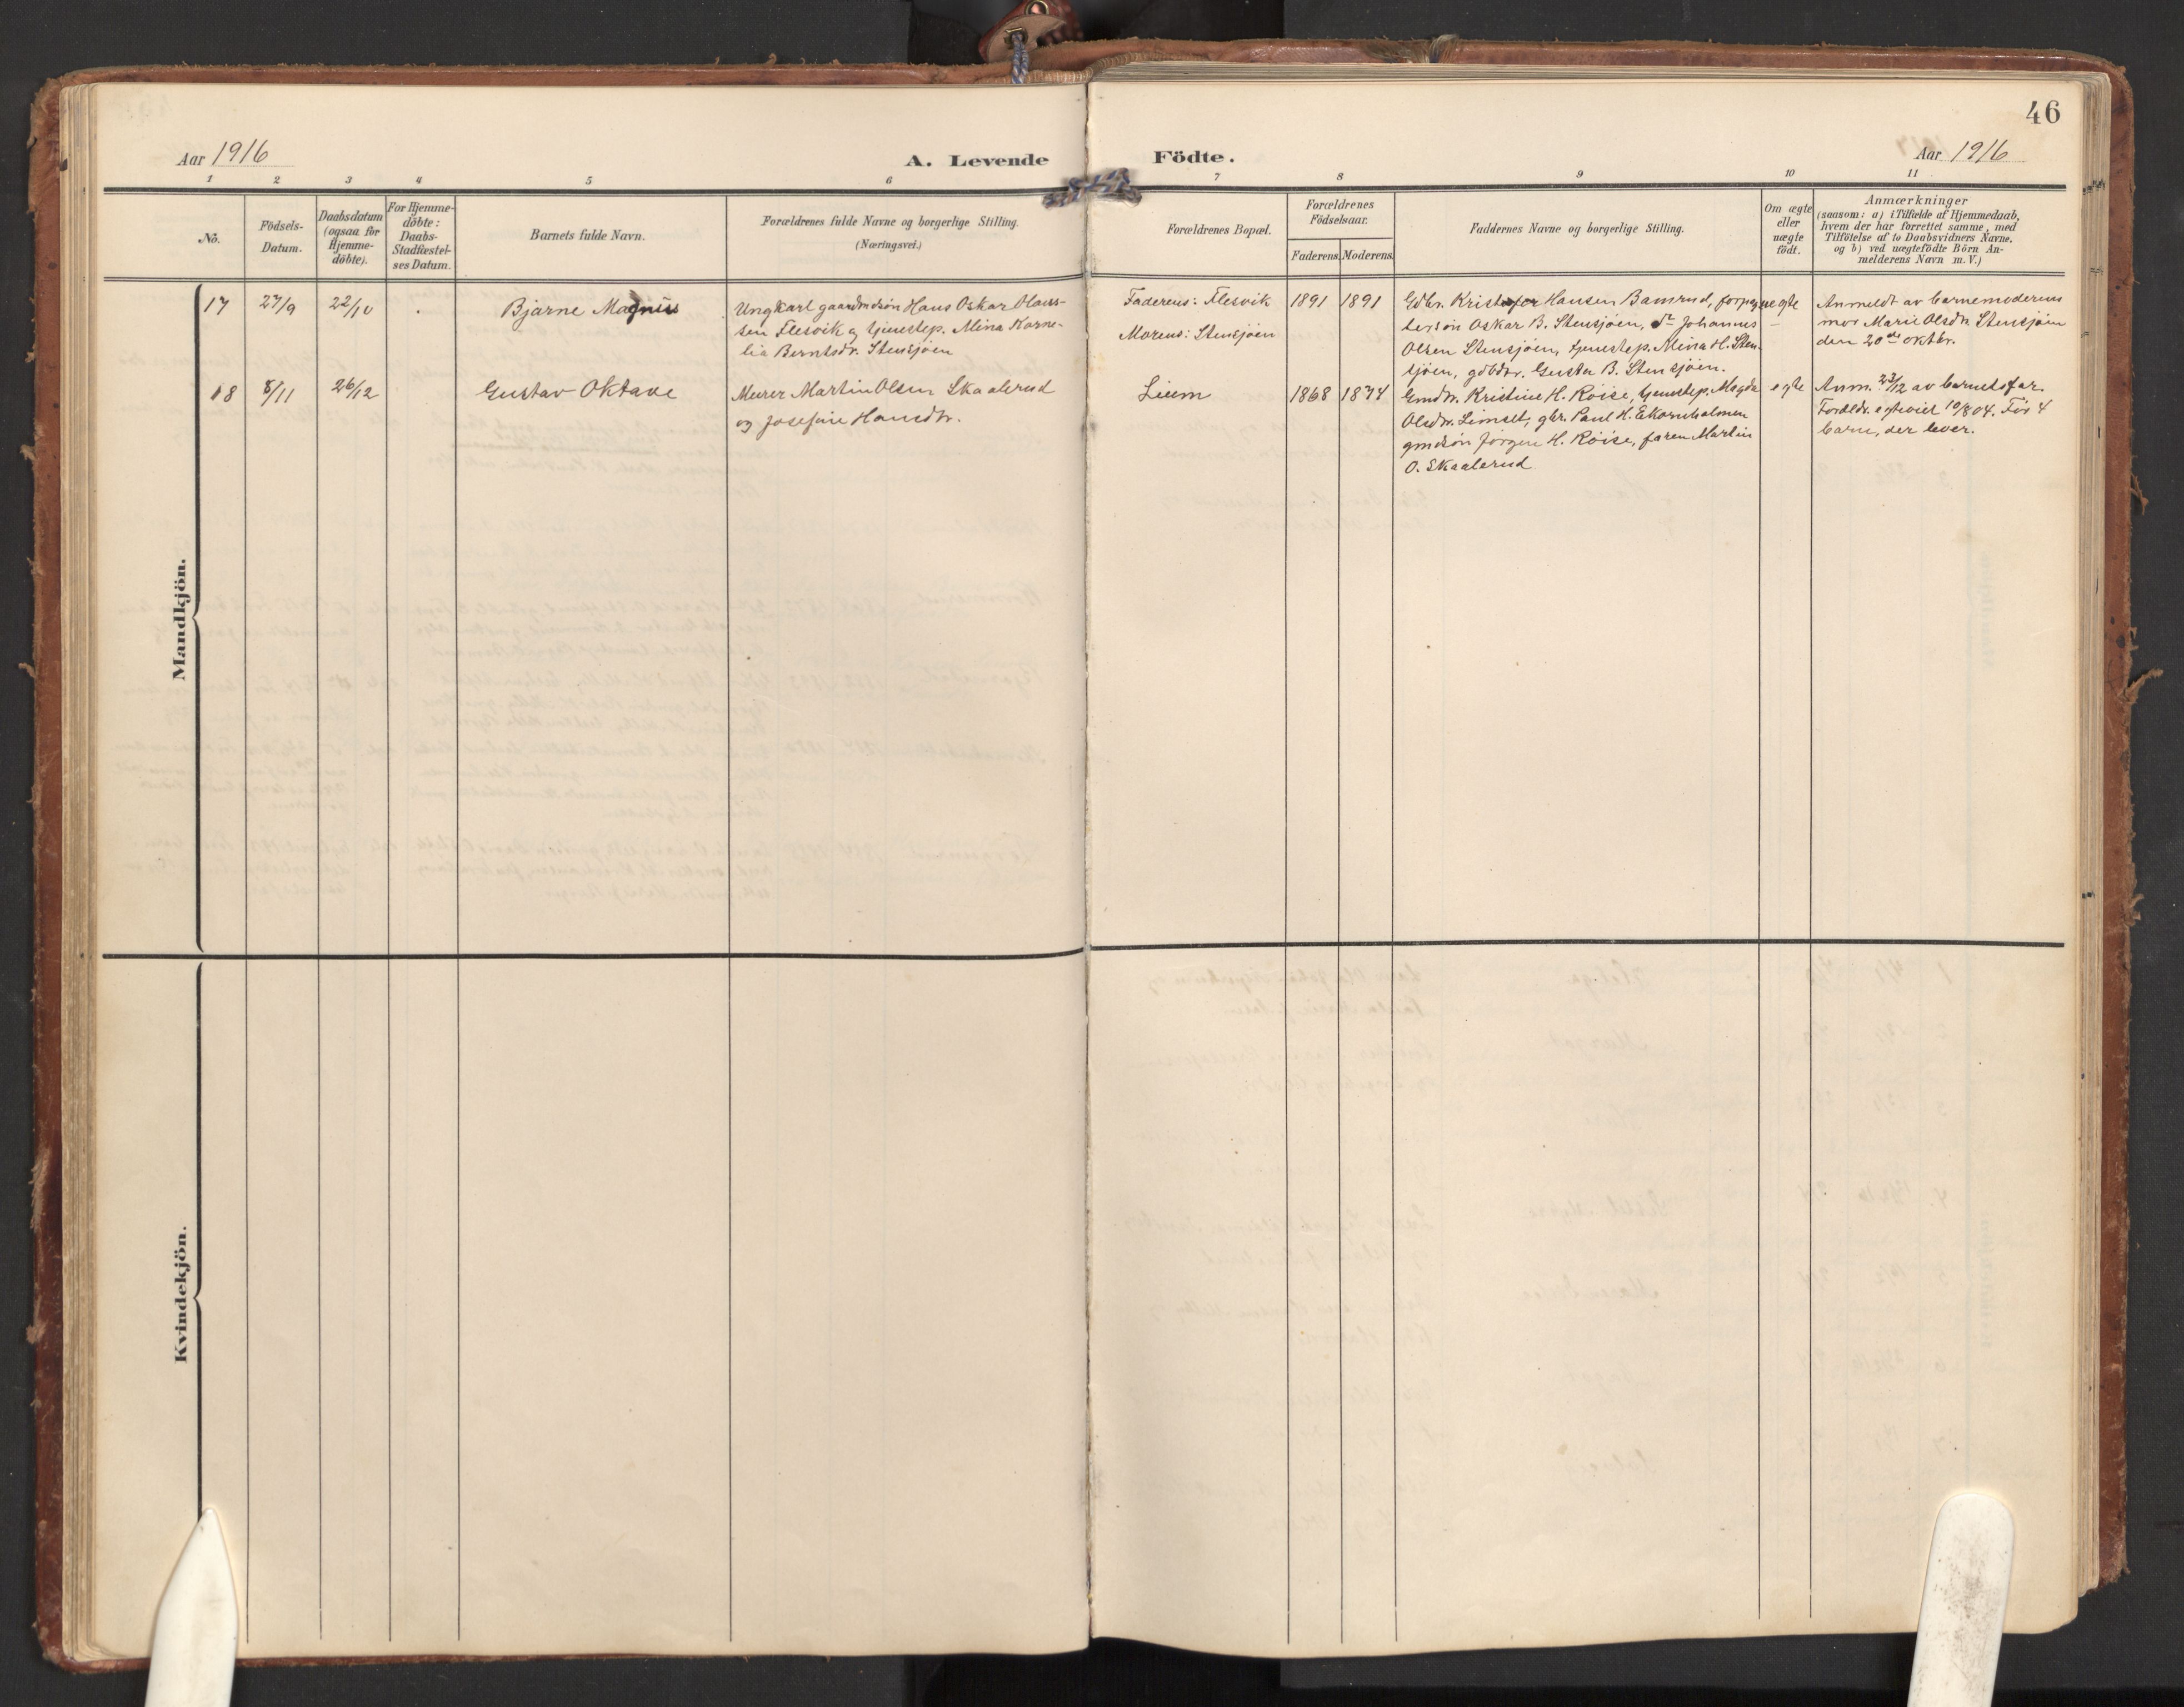 46
Aar 1916
A. Levende Födte.
Aar 1916
1 2 3 4 5 6 7 8 9 10 11
No.
Födsels-
Datum.
Daabsdatum
(ogsaa for
Hjemme-
döbte).
For Hjemme-
döbte:
Daabs-
Stadfæstel-
ses Datum.
Barnets fulde Navn.
Forældrenes fulde Navne og borgerlige Stilling.
(Næringsvei.)
Forældrenes Bopæl.
Forældrenes
Födselsaar.
Faderens. Moderens.
Faddernes Navne og borgerlige Stilling.
Om ægte
eller
uægte
födt.
Anmærkninger
(saasom: a) i Tilfælde af Hjemmedaab,
hvem der har forrettet samme, med
Tilföielse af to Daabsvidners Navne,
og b) ved uægtefödte Börn An-
melderens Navn m. V.)
Mandkjön.
17
27/9
22/10
Bjarne Magnus
Ungkarl gaardmdsön Hans Oskar Hans-
sen Flesvik og tjenestep. Mina Karne-
lia Berntsdr. Stensjöen
Faderens: Flesvik
Morens: Stensjöen
1891
1891
Gdbr. Kristofer Hansen Bamrud, forpag-
tersön Oskar B. Stensjöen, do Johannes
Olsen Stensjöen, tjenestep. Mina H. Sten-
sjöen, gdbdr. Gusta B. Stensjöen.
uegte
Anmeldt av barnemoderens
mor Marie Olsdr. Stensjöen
den 20de oktbr.
18
8/11
26/12
Gustav Oktave
Murer Martin Olsen Skaalerud
og Josefine Hansdtr.
Liem
1868
1874
Gmdtr. Kristine H. Röise, tjenestep. Magda
Olsdtr. Limset, gbr. Paul H. Ekornholmen
gmdsön Jörgen H. Röise, faren Martin
O. Skaalerud
egte
Anm. 23/12 av barnets far.
Foreldr. egteviet 10/8 04. Før 4
barn, der lever.
Kvindekjön.